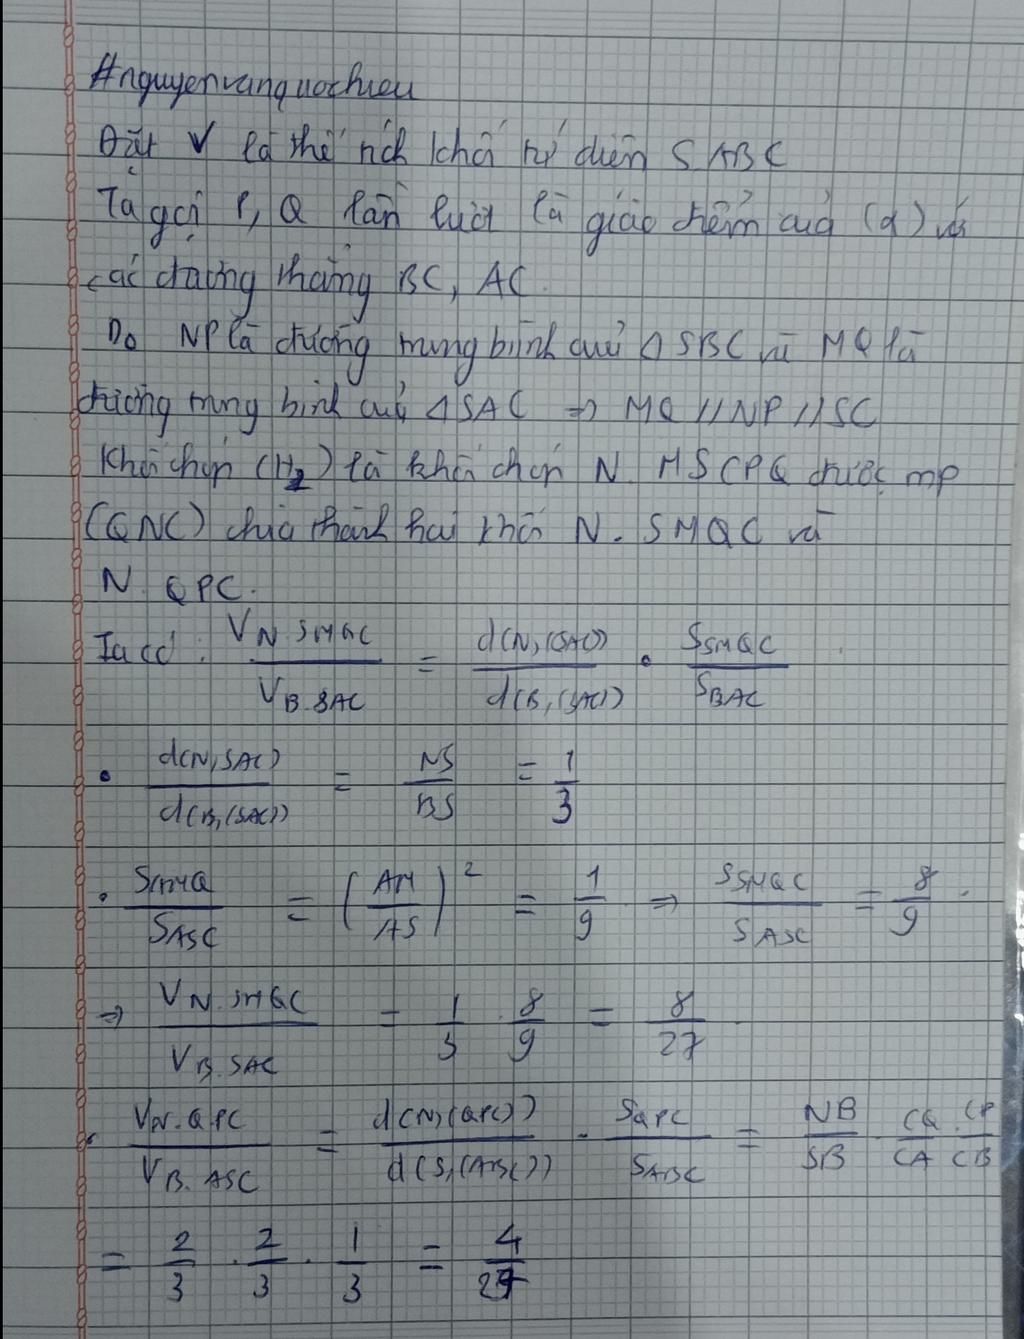 #nguyenvanquochieu
Đặt V là thể tích khối tứ diện S.ABC
Ta gọi P, Q lần lượt là giao điểm của (α) với
các đường thẳng BC, AC.
Do NP là đường trung bình của Δ SBC và MQ là
đường trung bình của ΔSAC ⇒ MQ // NP // SC
Khối chóp (H2) là khối chóp N. MSCPQ được mp
(QNC) chia thành hai khối N. SMQC và
N. QPC.
Ta có: V N.SMQC / V B.SAC = d(N,(SAC)) / d(B,(SAC)) . S SMQC / S BAC
• d(N,SAC) / d(B,(SAC)) = NS / BS = 1/3
• S AMQ / S ASC = (AM / AS)² = 1/9 ⇒ S SMQC / S ASC = 8/9.
⇒ V N.SMQC / V B.SAC = 1/3 . 8/9 = 8/27
• V N.QPC / V B.ASC = d(N,(QPC)) / d(S,(ABC)) . S QPC / S ABC = NB / SB . CQ / CA . CP / CB
= 2/3 . 2/3 . 1/3 = 4/27